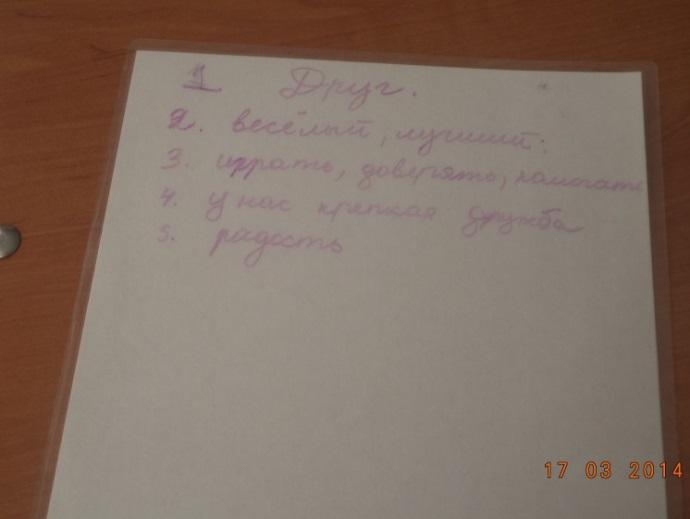 1 Друг.
2. весёлый, лучший.
3. играть, доверять, помогать
4. у нас крепкая дружба
5. радость
17 03 2014